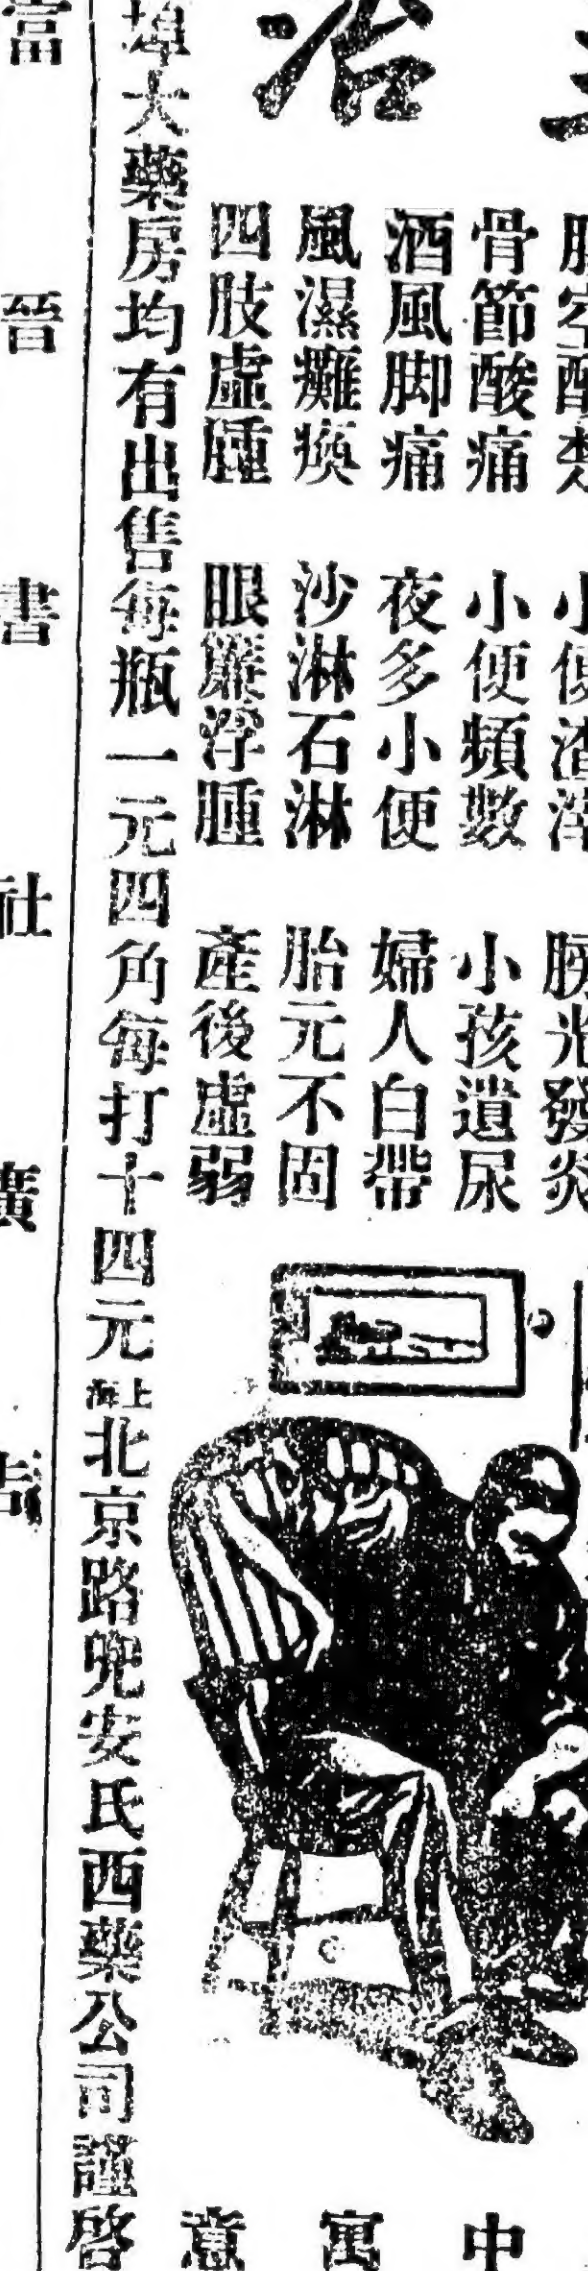 主治
骨節酸痛 小便頻數 小孩遺尿
酒風脚痛 夜多小便 婦人白帶
風濕癱瘓 沙淋石淋 胎元不固
四肢虛腫 眼簾浮腫 產後虛弱
埠大藥房均有出售每瓶一元四角每打十四元上海北京路兜安氏西藥公司謹啓
中寓意
富晉書社廣告